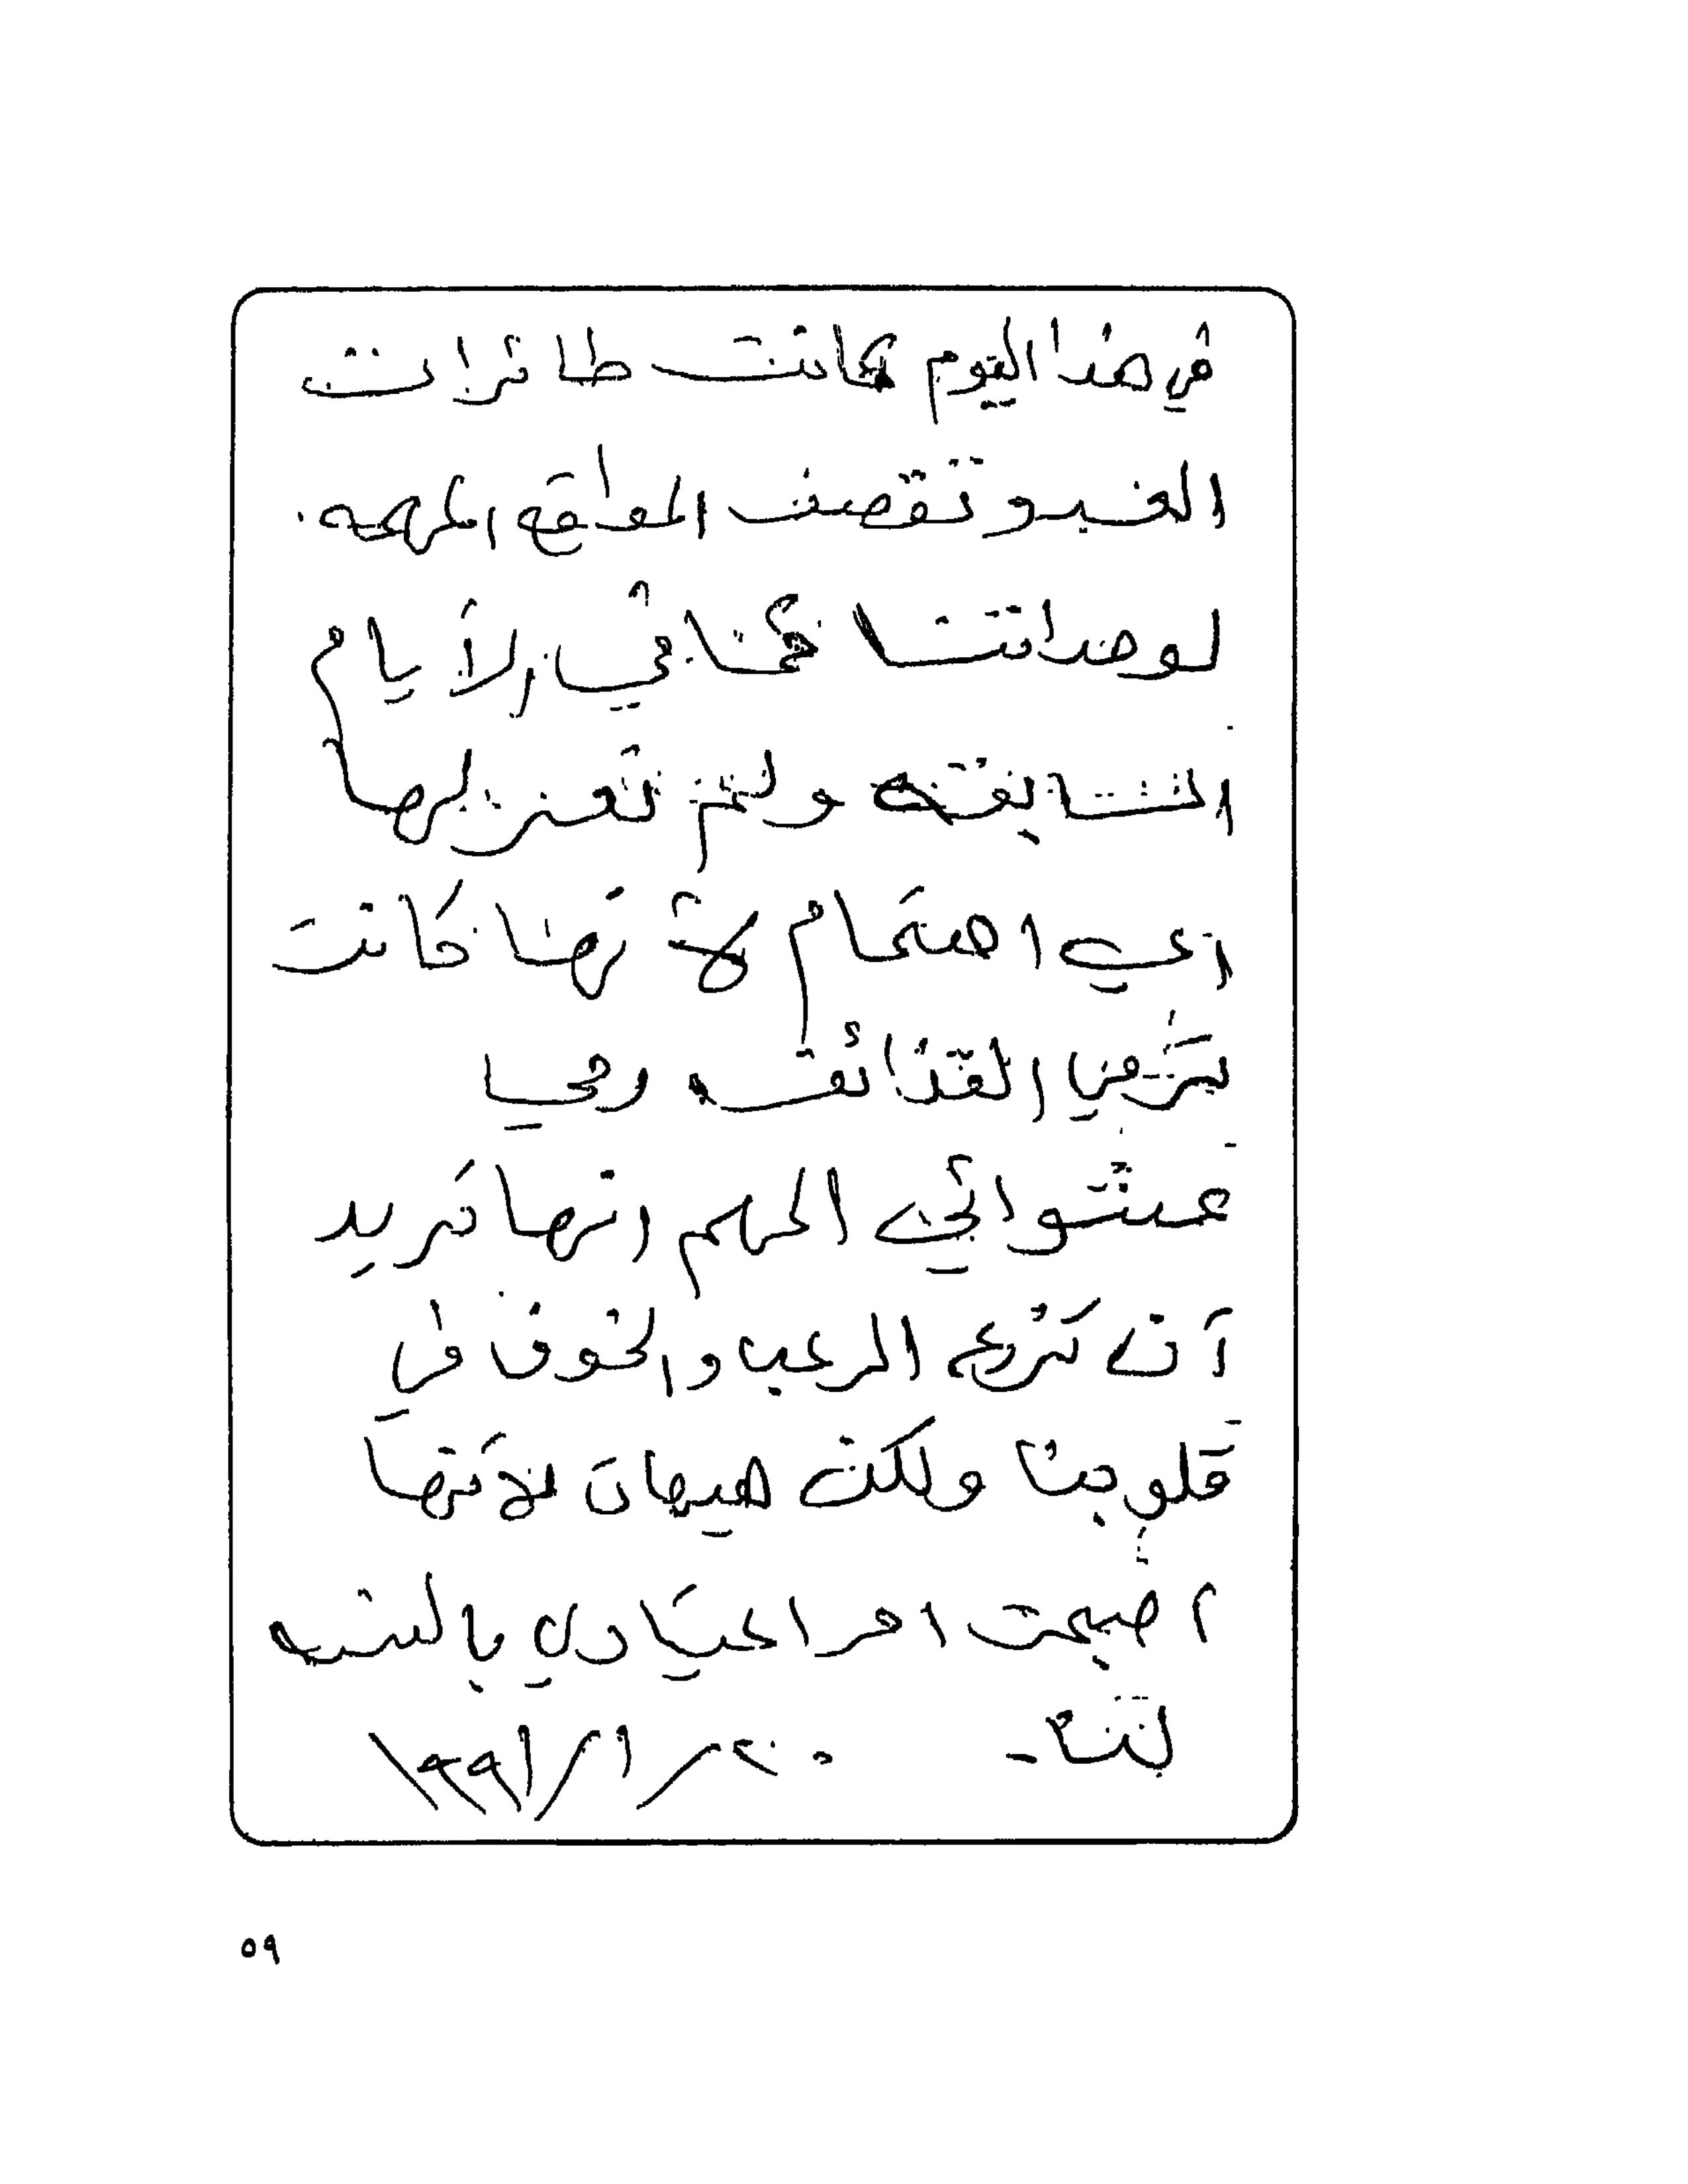 في هذا اليوم كانت طائرات
العدو تقصف المواقع المهمه.
لوحداتنا كما في الأيام
السابقه ولم نعر لها
اي اهتمام لأنها كانت
ترمي القذائف رميا
عشوائي المهم انها تريد
أن تزرع الرعب والخوف في
قلوبنا ولكن هيهات لأنها
اصبحت امر اعتيادي بالنسبه
لنا - ٢٠/١/١٩٩١
٥٩